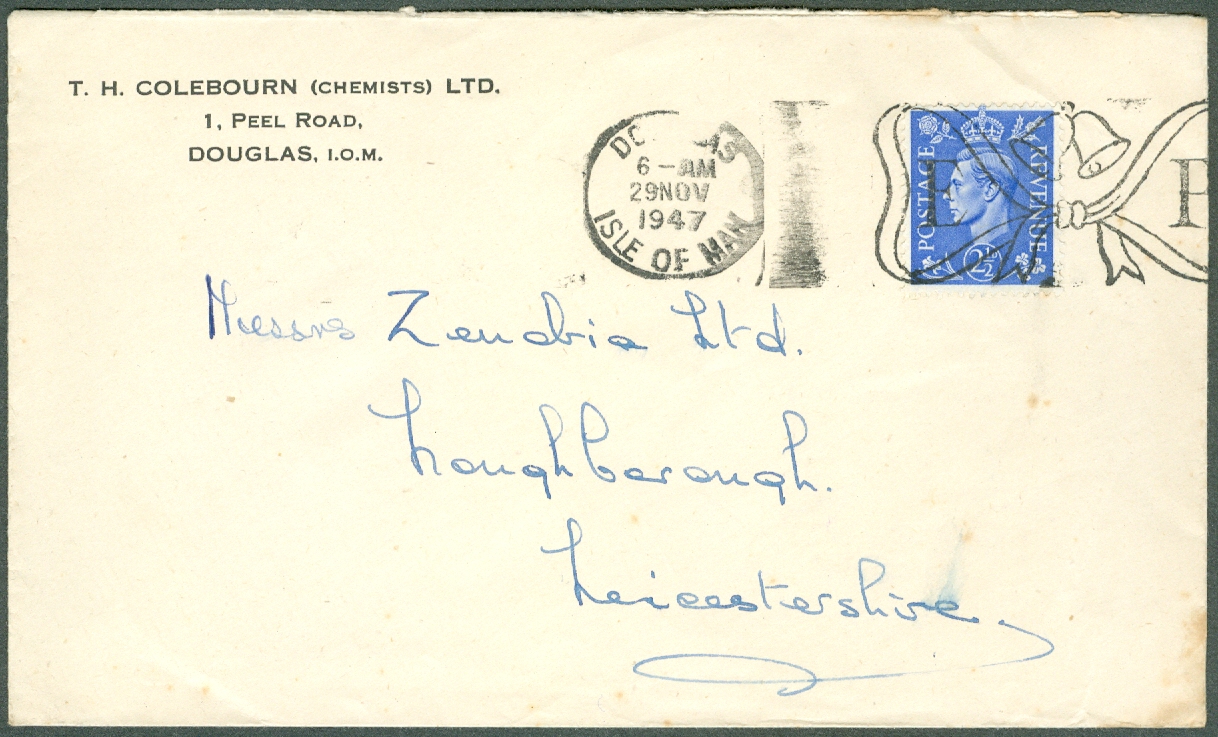 T. H. COLEBOURN (CHEMISTS) LTD.
1, PEEL ROAD,
DOUGLAS, I.O.M.
6 - AM
29 NOV
1947
ISLE OF MAN
POSTAGE
REVENUE
2½D
E
P
Messrs Zenobia Ltd.
Loughborough.
Leicestershire,